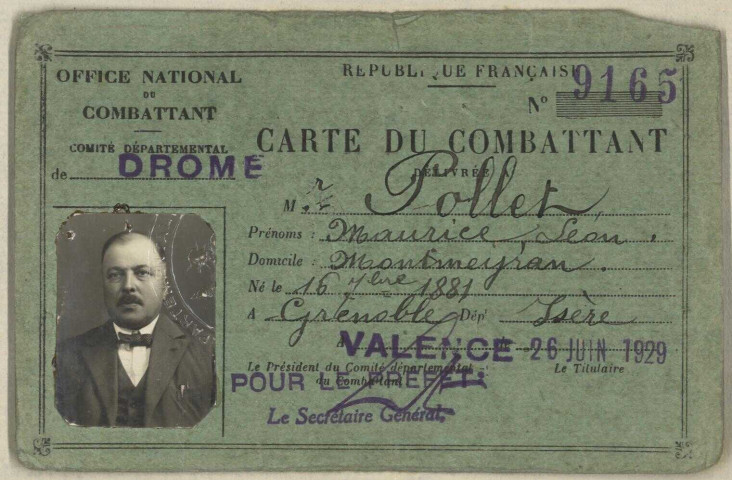 OFFICE NATIONAL
DU
COMBATTANT
COMITÉ DÉPARTEMENTAL
de DROME
RÉPUBLIQUE FRANÇAISE
No 9165
CARTE DU COMBATTANT
DÉLIVRÉE
M r Pollet
Prénoms : Maurice, Léon.
Domicile : Montmeyran.
Né le 16 7bre 1881
A Grenoble Dépt Isère
A VALENCE 26 JUIN 1929
Le Président du Comité départemental
du Combattant
Le Titulaire
POUR LE PREFET:
Le Secrétaire Général,